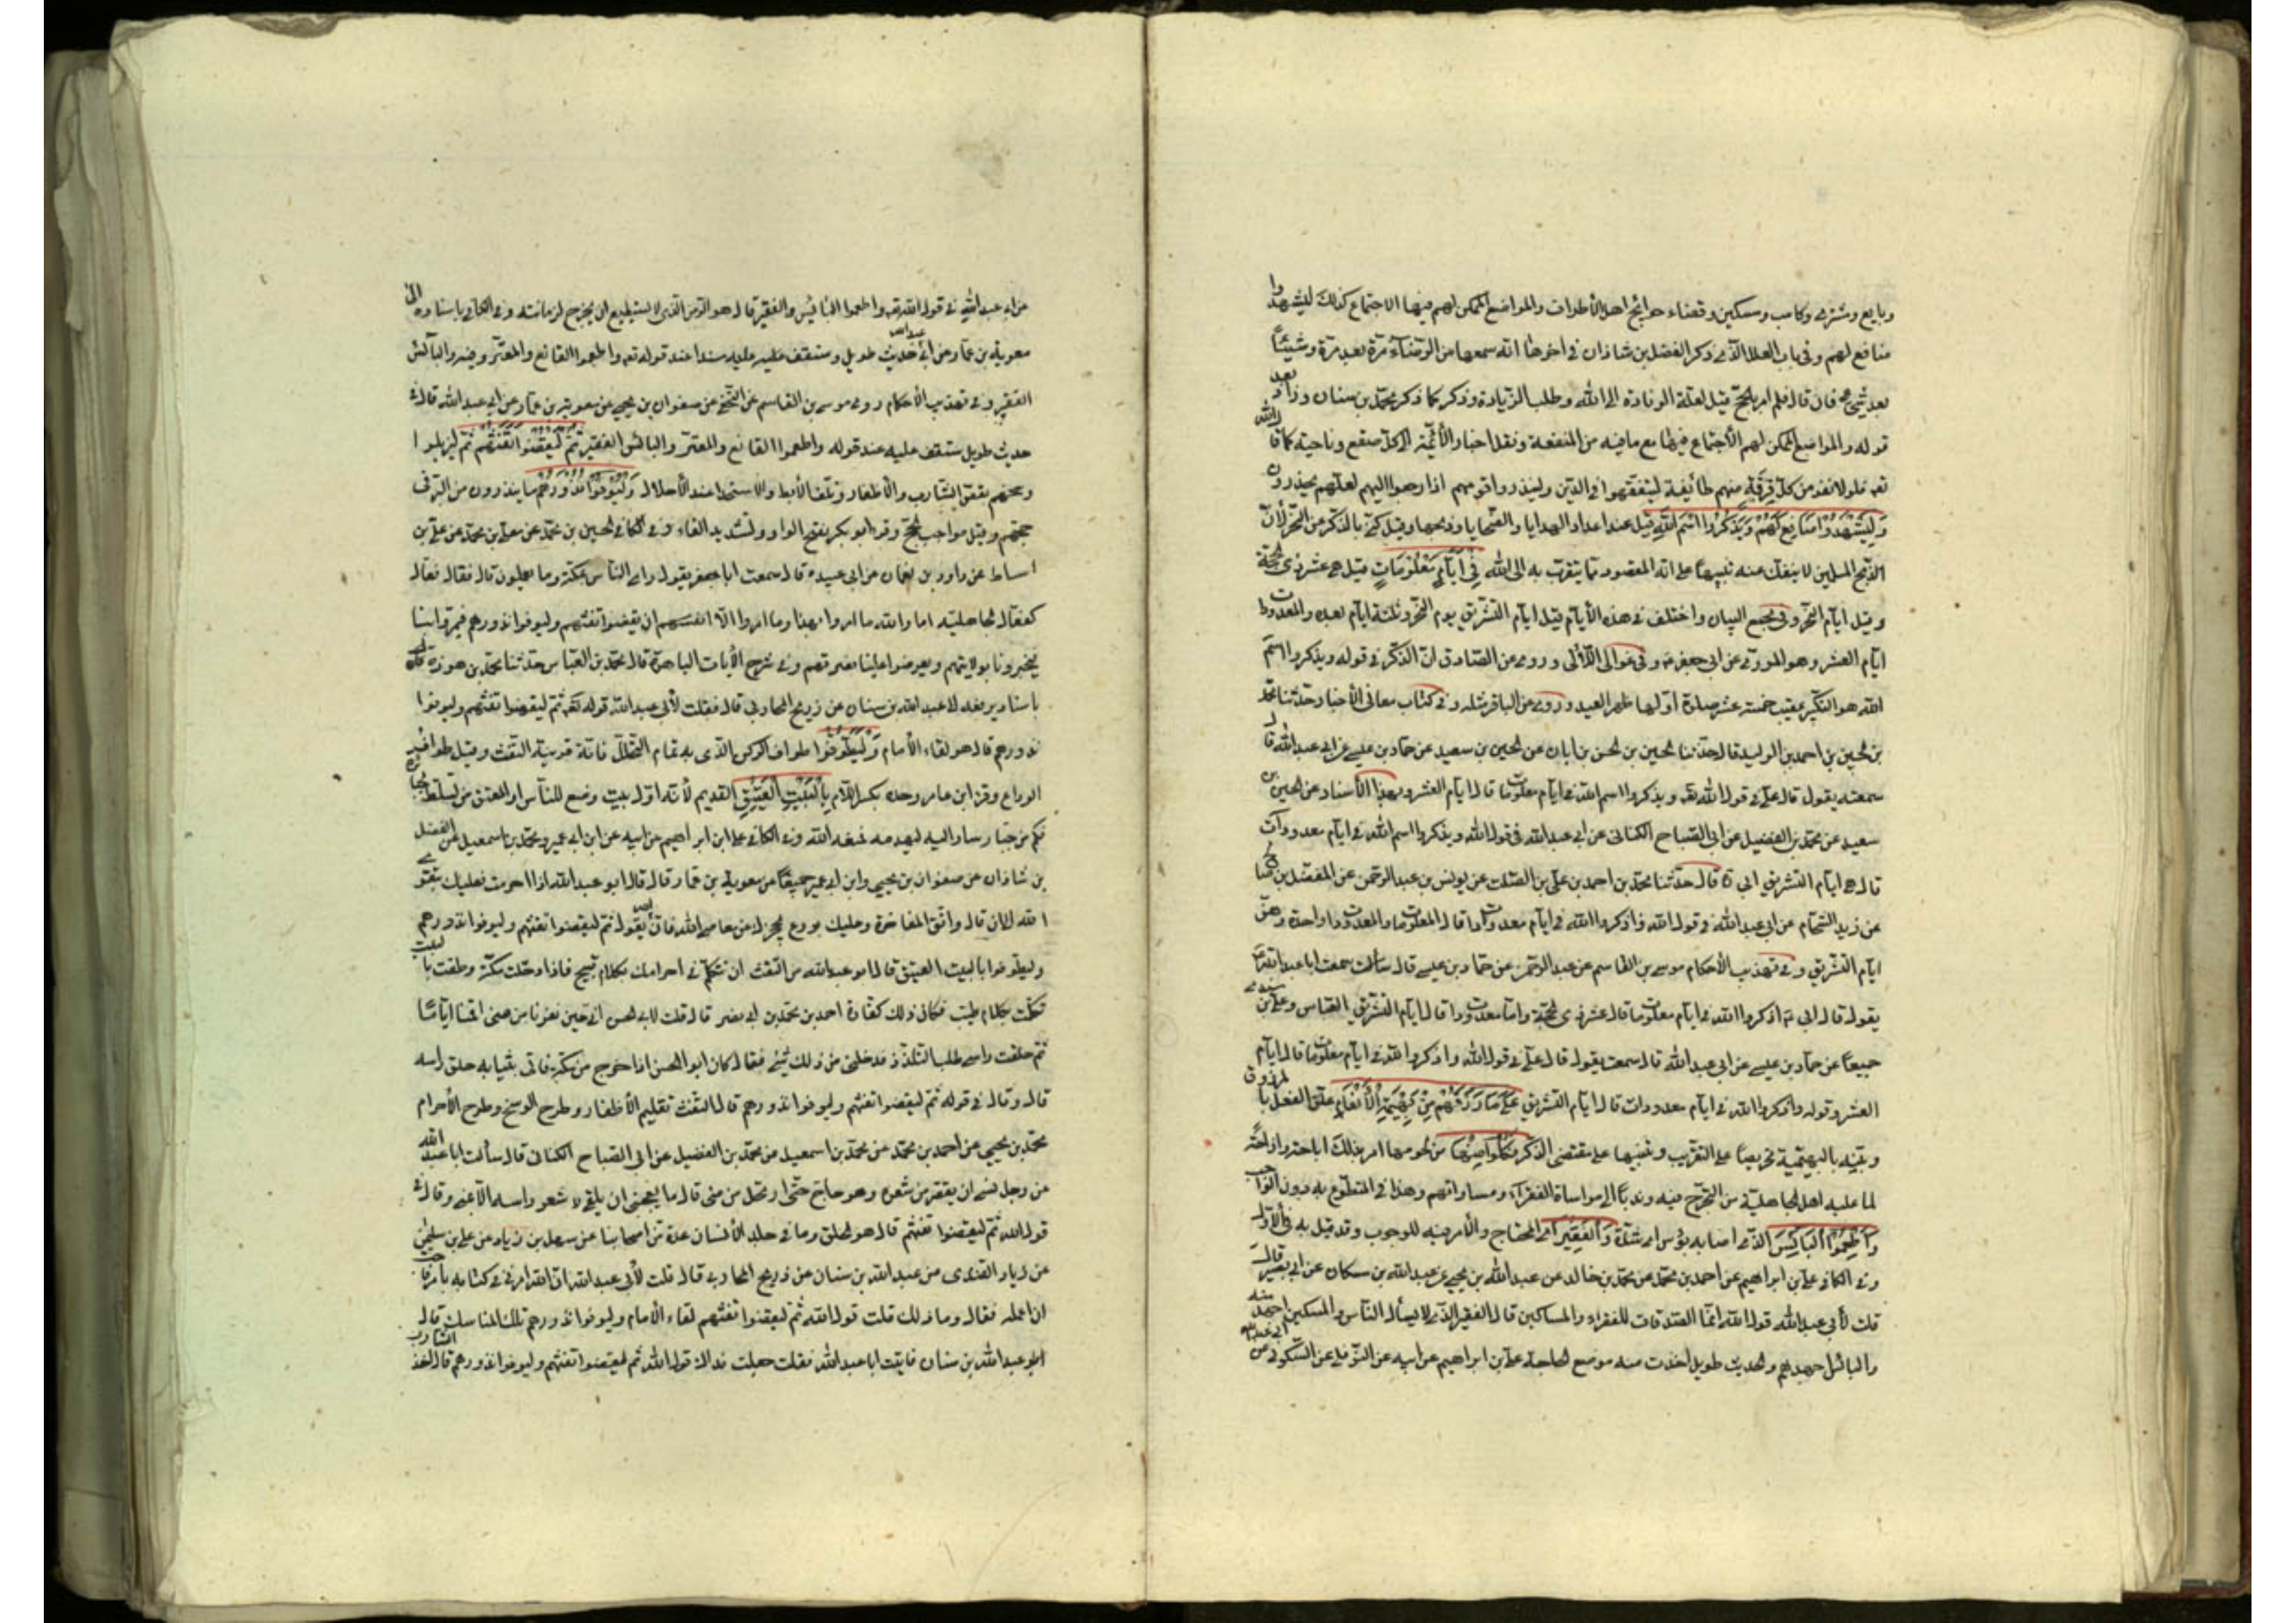 وبايع ومشتري وكاسب ومسكين وقضاء حوائج اهل الأطراف والمواضع الممكن لهم فيها الاجتماع كذلك ليشهدوا
منافع لهم وفي باب العلل الذي ذكر الفضل بن شاذان في اخرها انه سمعها من الرضا مرة بعد مرة وشيئاً
بعد شيء فان قال فلم امر بالحج قيل لعلة الوفادة الى الله وطلب الزيادة وذكر كما ذكر محمد بن سنان وزاد بعد
قوله والمواضع الممكن لهم الأجتماع فيها مع ما فيه من التفقه ونقل اخبار الأئمة الى كل صقع وناحية كما قال الله
تعـ فلولا نفر من كل فرقة منهم طائفة ليتفقهوا في الدين ولينذروا قومهم اذا رجعوا اليهم لعلهم يحذرون
وَلِيَشْهَدُوا مَنَافِعَ لَهُمْ وَيَذْكُرُوا اسْمَ اللّٰهِ قيل عند اعداد الهدايا والضحايا وذبحها وقيل كنى بالذكر من النحر لأن
الذبح المسلمين لا ينفك عنه تنبيهاً على انه المقصود مما يتقرب به الى الله فِي أَيَّامٍ مَعْلُومَاتٍ قيل هي عشر ذي الحجة
وقيل ايام النحر وفي مجمع البيان واختلف في هذه الأيام فقيل ايام التشريق يوم النحر وثلثة ايام بعده والمعدودات
ايام العشر وهو المروي عن ابي جعفر ع وفي عوالي اللآلي وروي عن الصادق ان الذكر في قوله ويذكروا اسم
الله هو التكبير عقيب خمسة عشر صلوة اولها ظهر العيد وروي عن الباقر مثله وفي كتاب معاني الأخبار حدثنا محمد
بن الحسين بن احمد بن الوليد قال حدثنا الحسين بن الحسن بن ابان عن الحسين بن سعيد عن حماد بن عيسى عن ابي عبد الله قال
سمعته يقول قال علي في قول الله تعـ ويذكروا اسم الله في ايام معلومات قال ايام العشر وبهذا الأسناد عن الحسين بن
سعيد عن محمد بن الفضيل عن ابي الصباح الكناني عن ابي عبد الله في قول الله ويذكروا اسم الله في ايام معدودات
قال هي ايام التشريق ابي ره قال حدثنا محمد بن احمد بن علي بن الصلت عن يونس بن عبد الرحمن عن المفضل بن صالح
عن زيد الشحام عن ابي عبد الله في قول الله واذكروا الله في ايام معدودات قال المعلومات والمعدودات واحدة وهن
ايام التشريق وفي تهذيب الأحكام موسى بن القاسم عن عبد الرحمن عن حماد بن عيسى قال سألت سمعت ابا عبد الله
يقول قال ابي ع اذكروا الله في ايام معلومات قال عشر ذي الحجة وايام معدودات قال ايام التشريق العباس وعلي بن
جميعاً عن حماد بن عيسى عن ابي عبد الله قال سمعته يقول قال علي في قول الله واذكروا الله في ايام معلومات قال ايام
العشر وقوله واذكروا الله في ايام معدودات قال ايام التشريق عَلَى مَا رَزَقَهُمْ مِنْ بَهِيمَةِ الْأَنْعَامِ علق الفعل بالمرزوق
وبينه بالبهيمة تحريصاً على التقرب وتنبيها على مقتضى الذكر فَكُلُوا مِنْهَا من لحومها امر بذلك اباحة وازاحة
لما عليه اهل الجاهلية من التحرج فيه وندباً الى مواساة الفقراء ومساواتهم وهذا في المتطوع به دون الواجب
وَأَطْعِمُوا الْبَائِسَ الذي اصابه بؤس اي شدة وَالْفَقِيرَ اي المحتاج والأمر فيه للوجوب وقد قيل به في الأول
وفي الكافي علي بن ابراهيم عن احمد بن محمد عن محمد بن خالد عن عبد الله بن يحيى عن عبد الله بن مسكان عن ابي بصير قال
قلت لأبي عبد الله قول الله انما الصدقات للفقراء والمساكين قال الفقير الذي لا يسأل الناس والمسكين اجهد منه
والبائس اجهدهم والحديث طويل اخذت منه موضع الحاجة علي بن ابراهيم عن ابيه عن النوفلي عن السكوني عن ابي عبد الله
عن ابي عبد الله في قول الله تعـ واطعموا البائس والفقير قال هو الزمن الذي لا يستطيع ان يخرج لزمانته وفي الكافي باسناده الى
معوية بن عمار عن ابي عبد الله حديث طويل وستقف عليه مسندا عند قوله تعـ واطعموا القانع والمعتر وفيه والبائس
الفقير وفي تهذيب الأحكام روى موسى بن القاسم عن النخعي عن صفوان بن يحيى عن معوية بن عمار عن ابي عبد الله قال في
حديث طويل ستقف عليه عند قوله واطعموا القانع والمعتر والبائس الفقير ثُمَّ لْيَقْضُوا تَفَثَهُمْ ثم ليزيلوا
وسخهم بقص الشارب والأظفار ونتف الأبط والاستحداد عند الأحلال وَلْيُوفُوا نُذُورَهُمْ ما ينذرون من البر في
حجتهم وقيل مواجب الحج وقرأ ابو بكر بفتح الواو وتشديد الفاء وفي الكافي الحسين بن محمد عن معلى بن محمد عن علي بن
اسباط عن داود بن نعمان عن ابي عبيدة قال سمعت ابا جعفر يقول وراى الناس بمكة وما يعملون قال فقال فعال
كفعال الجاهلية اما والله ما امروا بهذا وما امروا الا ان يقضوا تفثهم وليوفوا نذورهم فيمروا بنا
فيخبرونا بولايتهم ويعرضوا علينا نصرتهم وفي شرح الأيات الباهرة قال محمد بن العباس حدثنا محمد بن هوذة
باسناد يرفعه الى عبد الله بن سنان عن ذريح المحاربي قال قلت لأبي عبد الله قوله تعـ ثم ليقضوا تفثهم وليوفوا
نذورهم قال هو لقاء الأمام وَلْيَطَّوَّفُوا طواف الركن الذي به تمام التحلل فانه قرينة التفث وقيل طواف
الوداع وقرأ ابن عامر وحده بكسر اللام بِالْبَيْتِ الْعَتِيقِ القديم لأنه اول بيت وضع للناس او المعتق من تسلط الجبابرة
فكم من جبار سار اليه ليهدمه فمنعه الله وفي الكافي علي بن ابراهيم عن ابيه عن ابن ابي عمير ومحمد بن اسمعيل عن الفضل
بن شاذان عن صفوان بن يحيى وابن ابي عمير جميعاً عن معوية بن عمار قال قال ابو عبد الله اذا احرمت فعليك بتقوى
الله الى ان قال واتق المفاخرة وعليك بورع يحجزك عن معاصي الله فان الله يقول ثم ليقضوا تفثهم وليوفوا نذورهم
وليطوفوا بالبيت العتيق قال ابو عبد الله من التفث ان تتكلم في احرامك بكلام قبيح فاذا دخلت مكة وطفت بالبيت
تكلمت بكلام طيب فكان ذلك كفارة احمد بن محمد بن ابي نصر قال قلت لابي الحسن انا حين نفرنا من منى اقمنا اياماً
ثم حلقت راسي طلب التلذذ فدخلني من ذلك شيء فقال كان ابو الحسن اذا خرج من مكة فاتي بثيابه حلق راسه
قال وقال في قوله ثم ليقضوا تفثهم وليوفوا نذورهم قال التفث تقليم الأظفار وطرح الوسخ وطرح الأحرام
محمد بن يحيى عن احمد بن محمد عن محمد بن اسمعيل عن محمد بن الفضيل عن ابي الصباح الكناني قال سألت ابا عبد الله
عن رجل نسي ان يقصر من شعره وهو حاج حتى ارتحل من منى قال ما يعجبني ان يلقي شعر راسه الا بمنى وقال في
قول الله ثم ليقضوا تفثهم قال هو الحلق وما في جلد الأنسان عدة من اصحابنا عن سهل بن زياد عن علي بن سليمان
عن زياد القندي عن عبد الله بن سنان عن ذريح المحاربي قال قلت لأبي عبد الله ان الله امرني في كتابه بامر فاحب
ان اعمله فقال وما ذلك قلت قول الله ثم ليقضوا تفثهم لقاء الامام وليوفوا نذورهم تلك المناسك قال
عبد الله بن سنان فاتيت ابا عبد الله فقلت جعلت فداك قول الله ثم ليقضوا تفثهم وليوفوا نذورهم قال اخذ الشارب